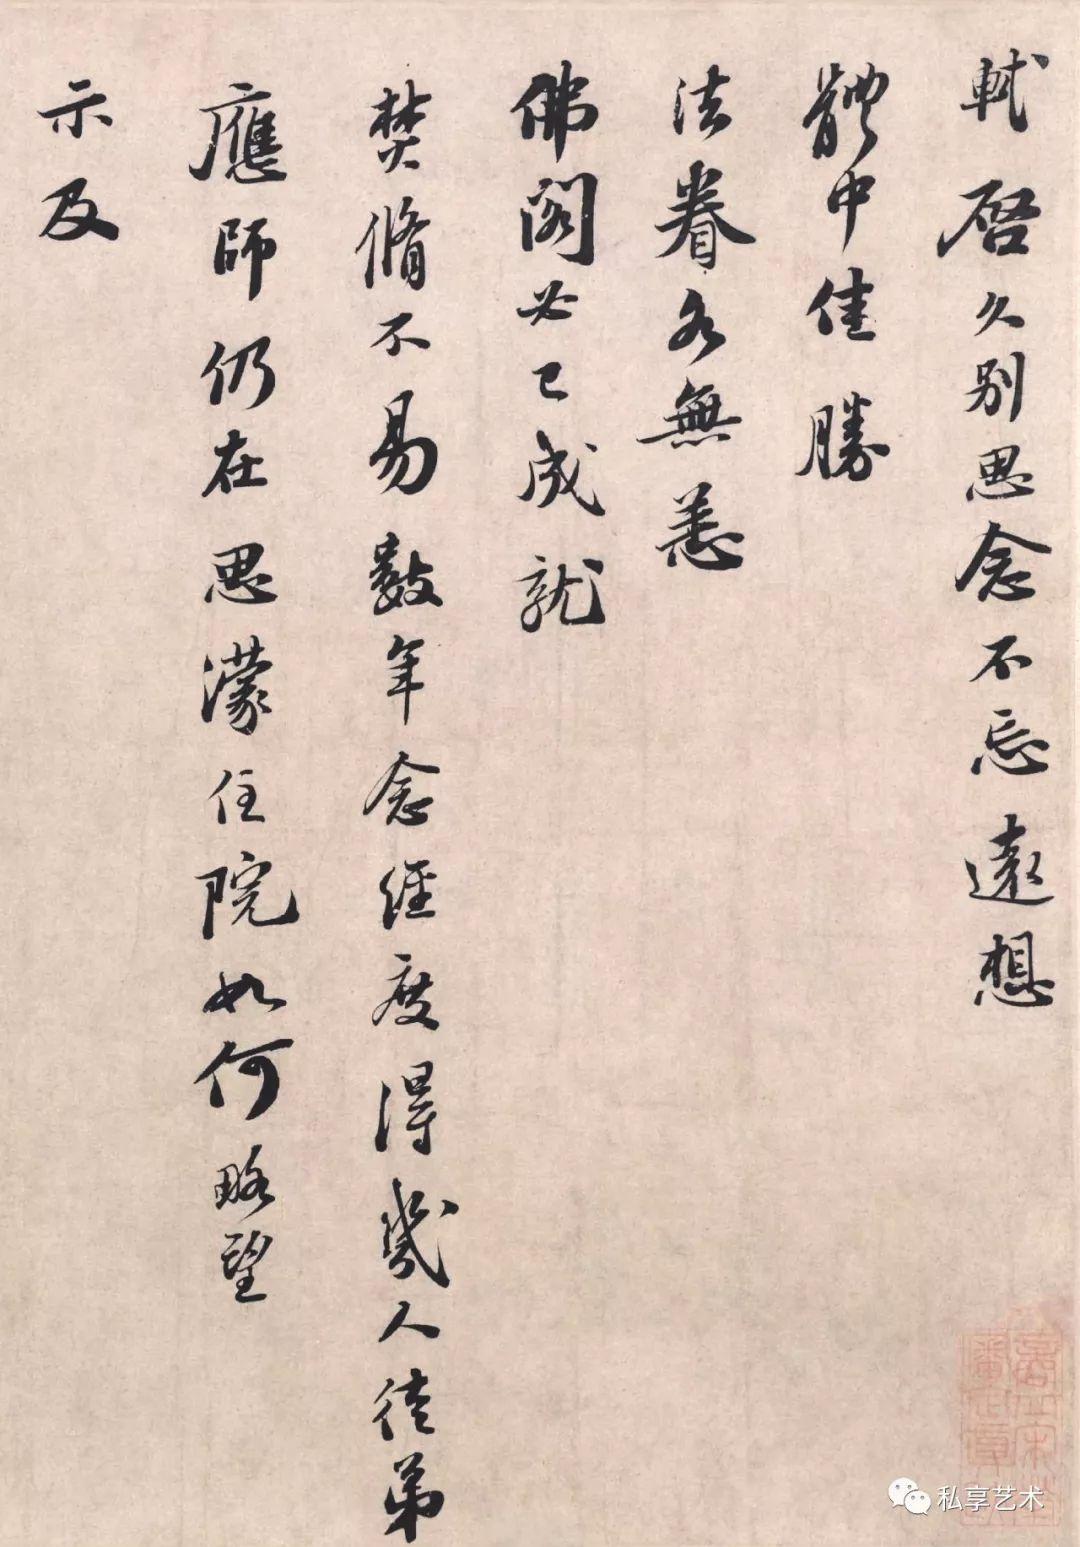 軾啓久別思念不忘遠想
體中佳勝
法眷各無恙
佛閣必已成就
焚脩不易數年念經度得幾人徒弟
應師仍在思濛住院如何略望
示及
私享艺术